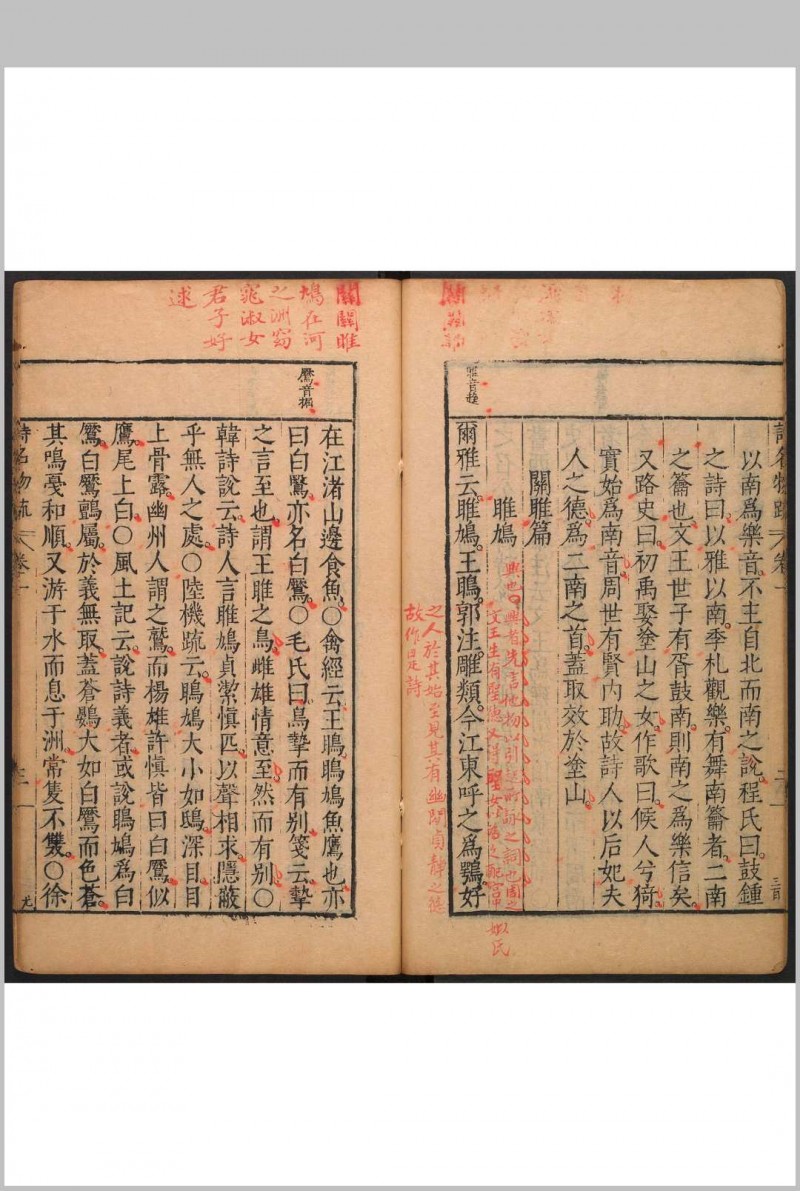 以南爲樂音不主自北而南之說程氏曰鼓鍾
之詩曰以雅以南季札觀樂有舞南籥者二南
之籥也文王世子有胥鼓南則南之爲樂信矣
又路史曰初禹娶塗山之女作歌曰候人兮猗
實始爲南音周世有賢內助故詩人以后妃夫
人之德爲二南之首蓋取效於塗山
關雎篇
雎鳩
興也興者先言他物以引起所詠之詞也周之
文王生有聖德又得聖女姒氏以爲之配宮中
之人於其始至見其有幽閒貞靜之德
故作是詩
爾雅云雎鳩王鴡郭注雕類今江東呼之爲鶚好
關關雎
鳩在河
之洲窈
窕淑女
君子好
逑
鷢音撅
在江渚山邊食魚○禽經云王鴡鴡鳩魚鷹也亦
曰白鷢亦名白鷢○毛氏曰鳥摯而有別箋云摯
之言至也謂王雎之鳥雌雄情意至然而有別○
韓詩說云詩人言雎鳩貞潔慎匹以聲相求隱蔽
乎無人之處○陸機疏云鴡鳩大小如鴟深目目
上骨露幽州人謂之鷲而楊雄許慎皆曰白鷢似
鷹尾上白○風土記云說詩義者或說鴡鳩爲白
鷢白鷢鷧屬於義無取蓋蒼鷃大如白鷢而色蒼
其鳴戞和順又游于水而息于洲常隻不雙○徐
詩名物疏 卷一